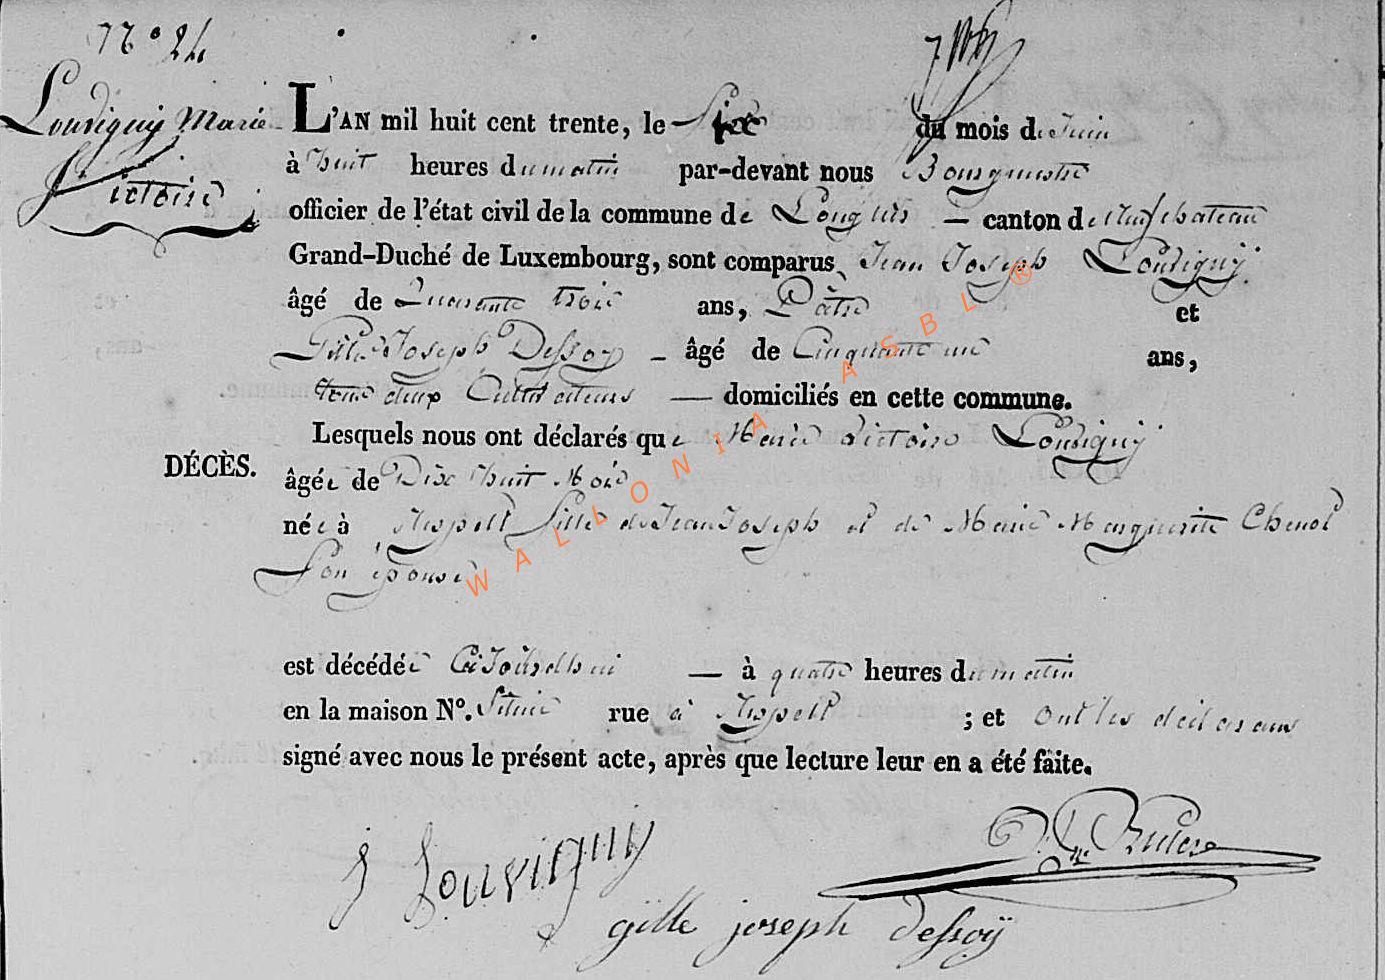 N° 24
Louvigny Marie
Victoire
L'AN mil huit cent trente, le Six du mois de Juin
à huit heures du matin par-devant nous Bourguemestre
officier de l'état civil de la commune de Longlier — canton de Neufchateau
Grand-Duché de Luxembourg, sont comparus Jean Joseph Louvigny
âgé de Quarante trois ans, Pâtre et
Gille Joseph Dessoy — âgé de Cinquante un ans,
tous deux Cultivateurs — domiciliés en cette commune.
Lesquels nous ont déclarés que Marie Victoire Louvigny
DÉCÈS.
âgée de Dix huit Mois
née à Respelt fille de Jean Joseph et de Marie Marguerite Chenot
Son épouse
est décédée Cejourdhui — à quatre heures du matin
en la maison N°. Située rue à Respelt ; et ont les déclarans
signé avec nous le présent acte, après que lecture leur en a été faite.
J Louvigny
gille joseph dessoÿ
WALLONIA ASBL ®